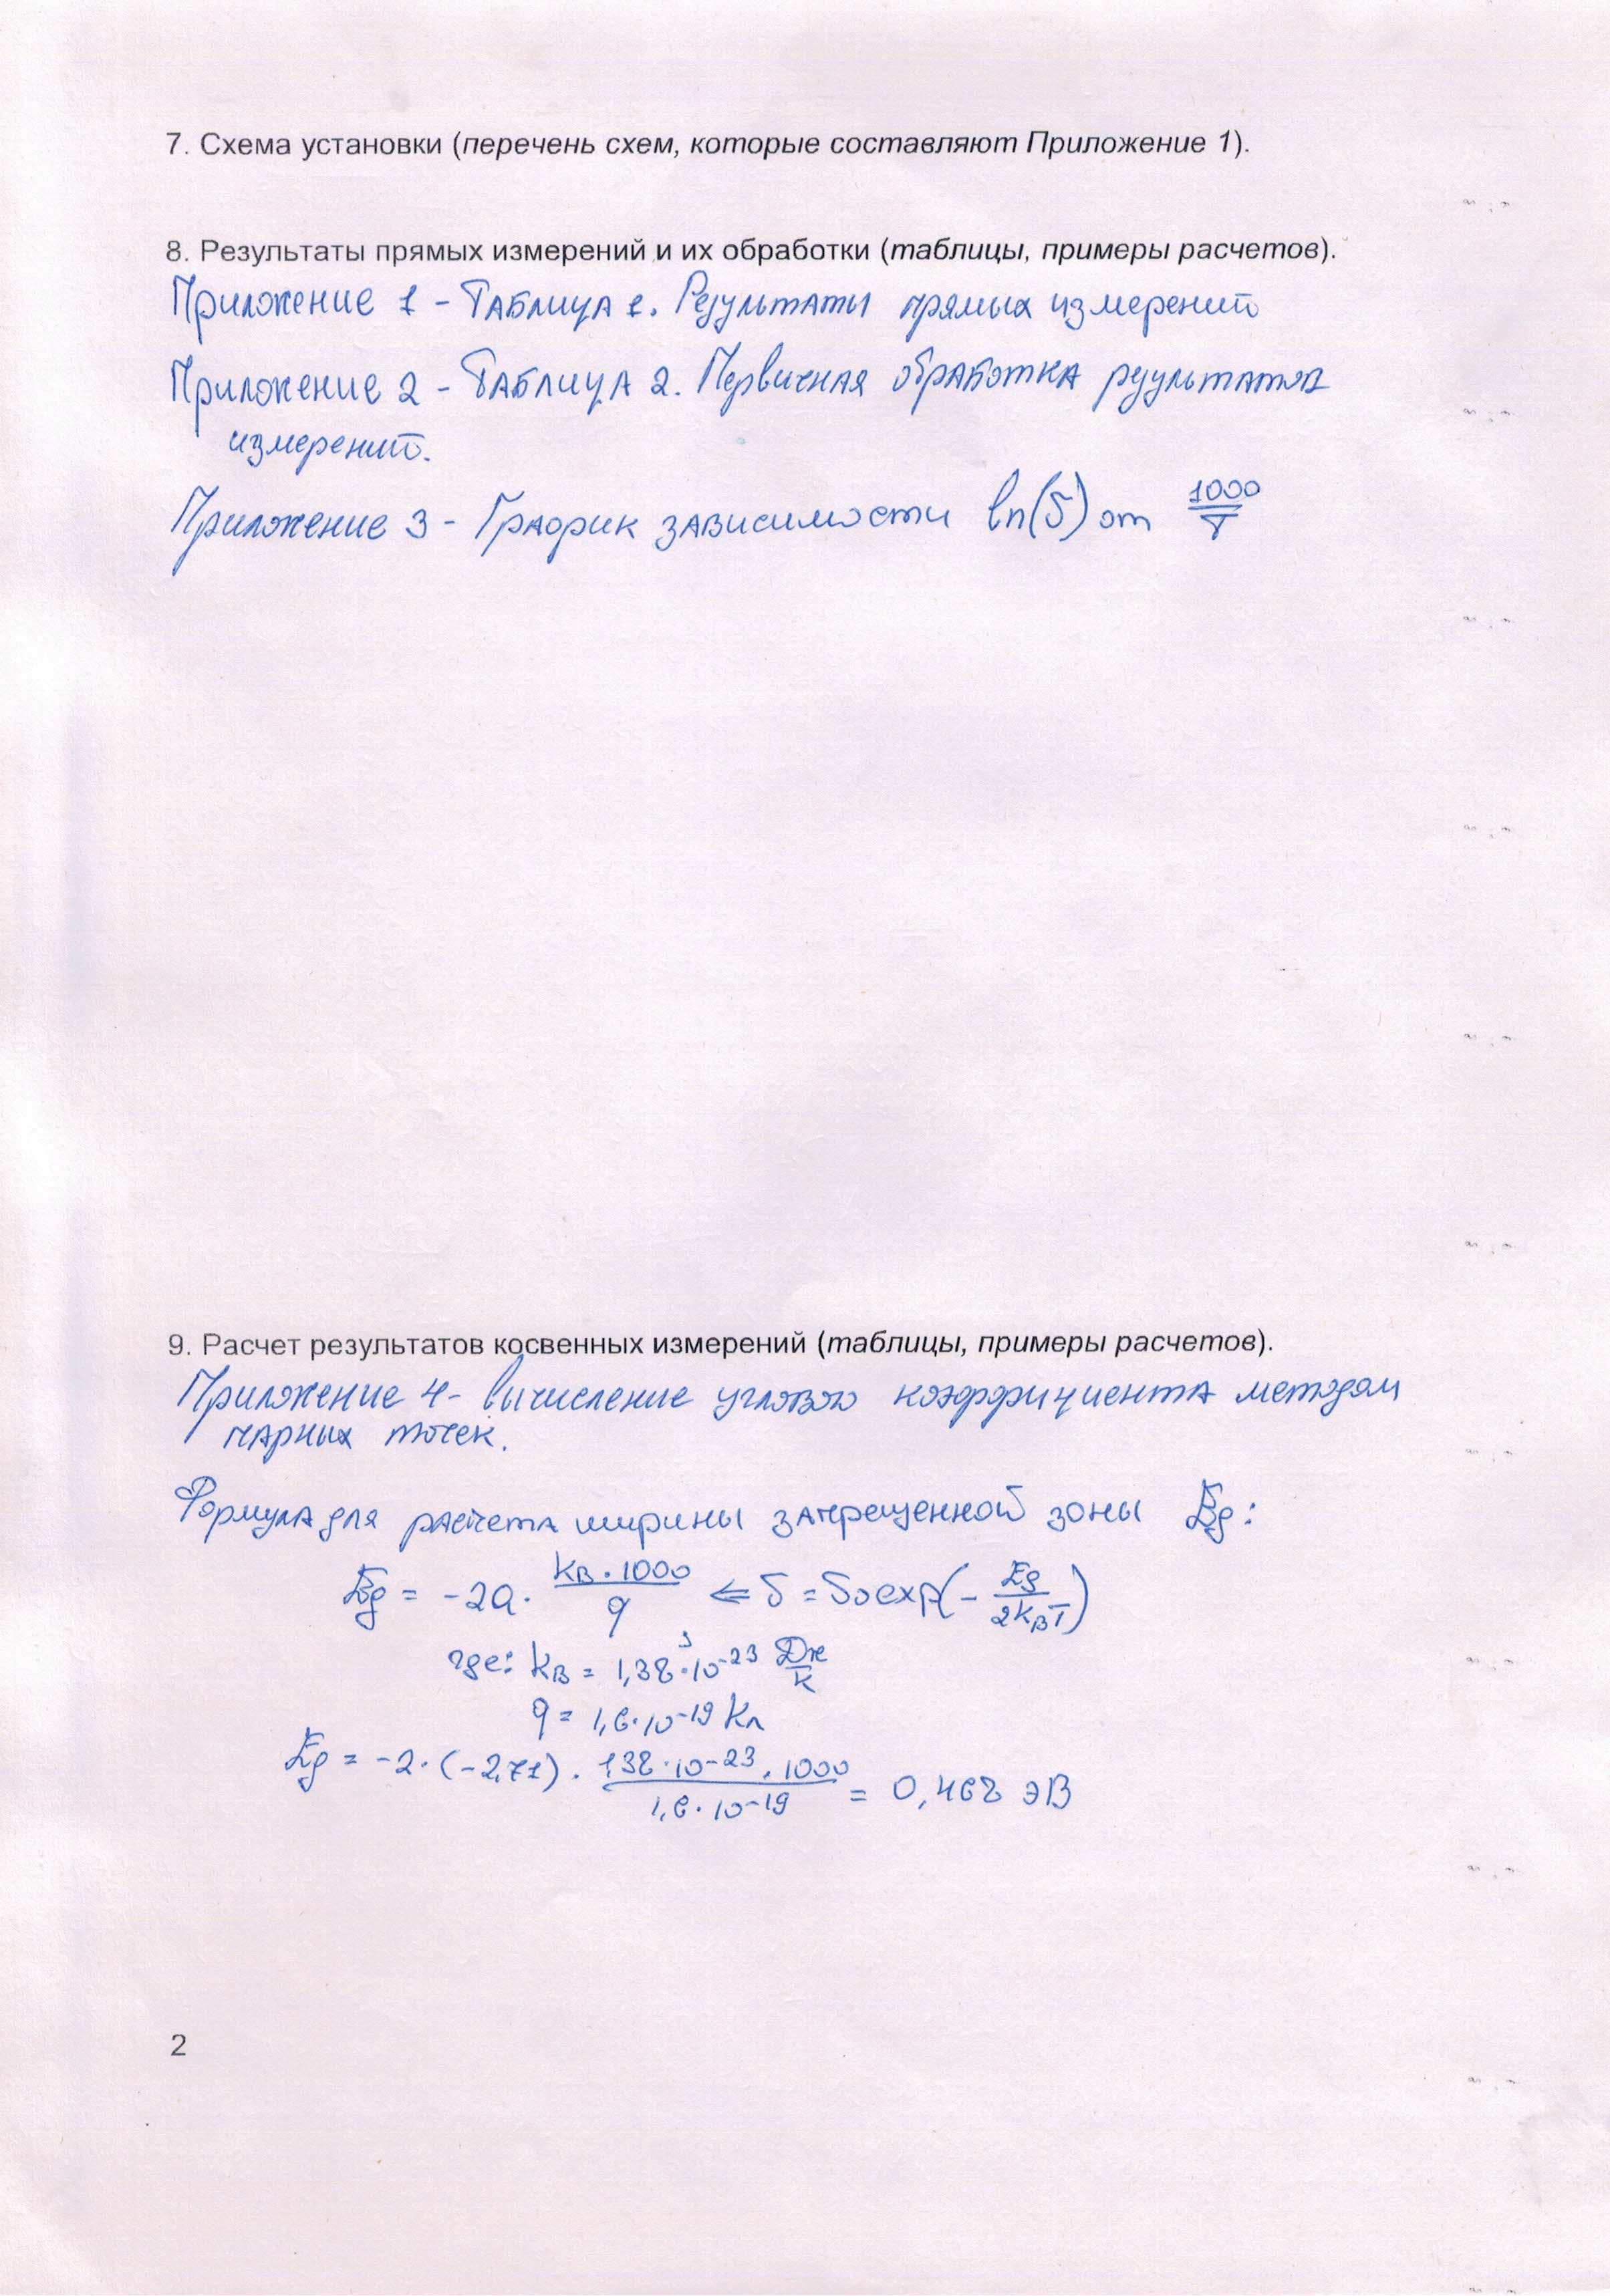 7. Схема установки (перечень схем, которые составляют Приложение 1).
8. Результаты прямых измерений и их обработки (таблицы, примеры расчетов).
Приложение 1 - Таблица 1. Результаты прямых измерений
Приложение 2 - Таблица 2. Первичная обработка результатов
измерений.
Приложение 3 - График зависимости ln(σ) от 1000/T
9. Расчет результатов косвенных измерений (таблицы, примеры расчетов).
Приложение 4 - Вычисление углового коэффициента методом
парных точек.
Формула для расчета ширины запрещенной зоны Eg:
Eg = -2a · (kB · 1000)/q ⇐ σ = σ0 exp(- Eg/(2kBT))
где: kB = 1,38 · 10^-23 Дж/К
q = 1,6 · 10^-19 Кл
Eg = -2 · (-2,71) · (1,38 · 10^-23 · 1000)/(1,6 · 10^-19) = 0,468 эВ
2